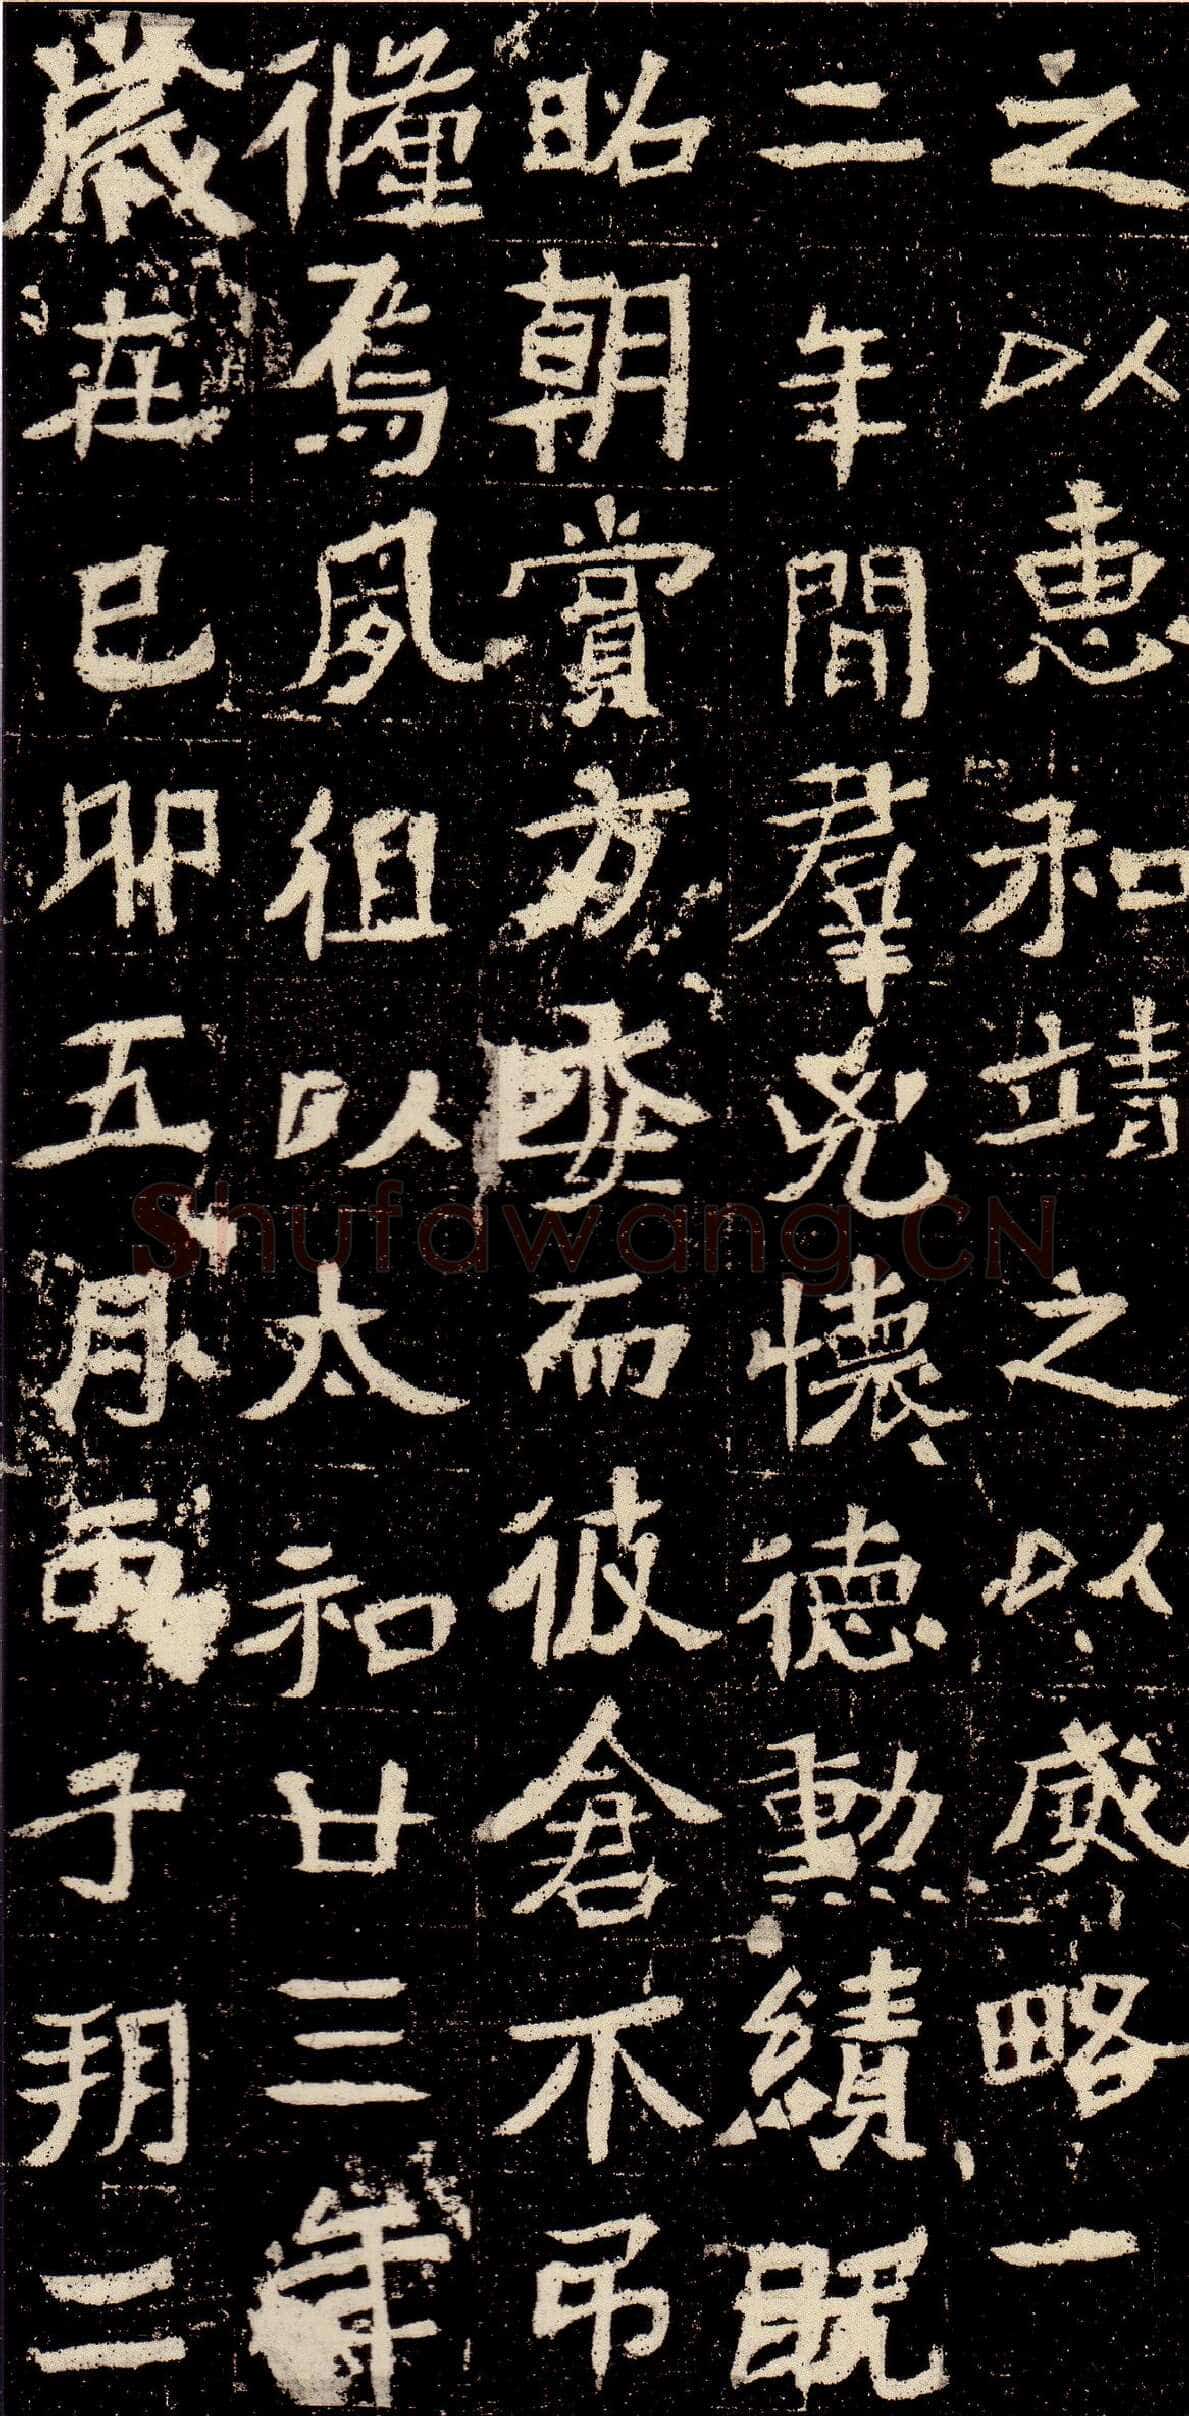 之以惠和靖之以威略一
二年間羣兇懷德勳績既
昭朝賞方委而彼倉不弔
殲焉夙徂以太和廿三年
歲在己卯五月丙子朔二
Shufawang.CN